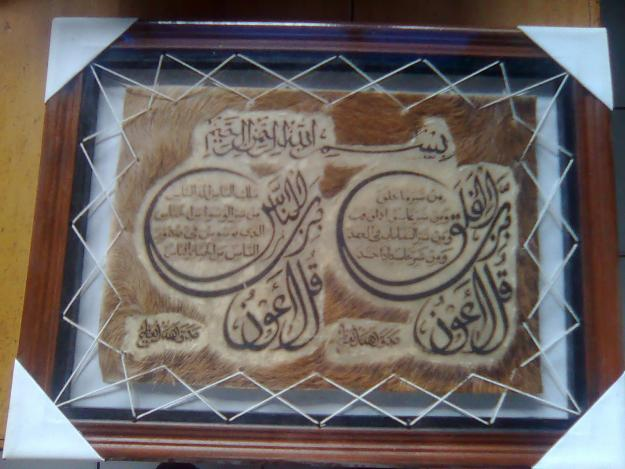 بسم الله الرحمن الرحيم
قل أعوذ
برب الفلق
من شر ما خلق
ومن شر غاسق اذا وقب
ومن شر النفاثات في العقد
ومن شر حاسد اذا حسد
صدق الله العظيم
قل أعوذ
برب الناس
ملك الناس اله الناس
من شر الوسواس الخناس
الذي يوسوس في صدور
الناس من الجنة والناس
صدق الله العظيم